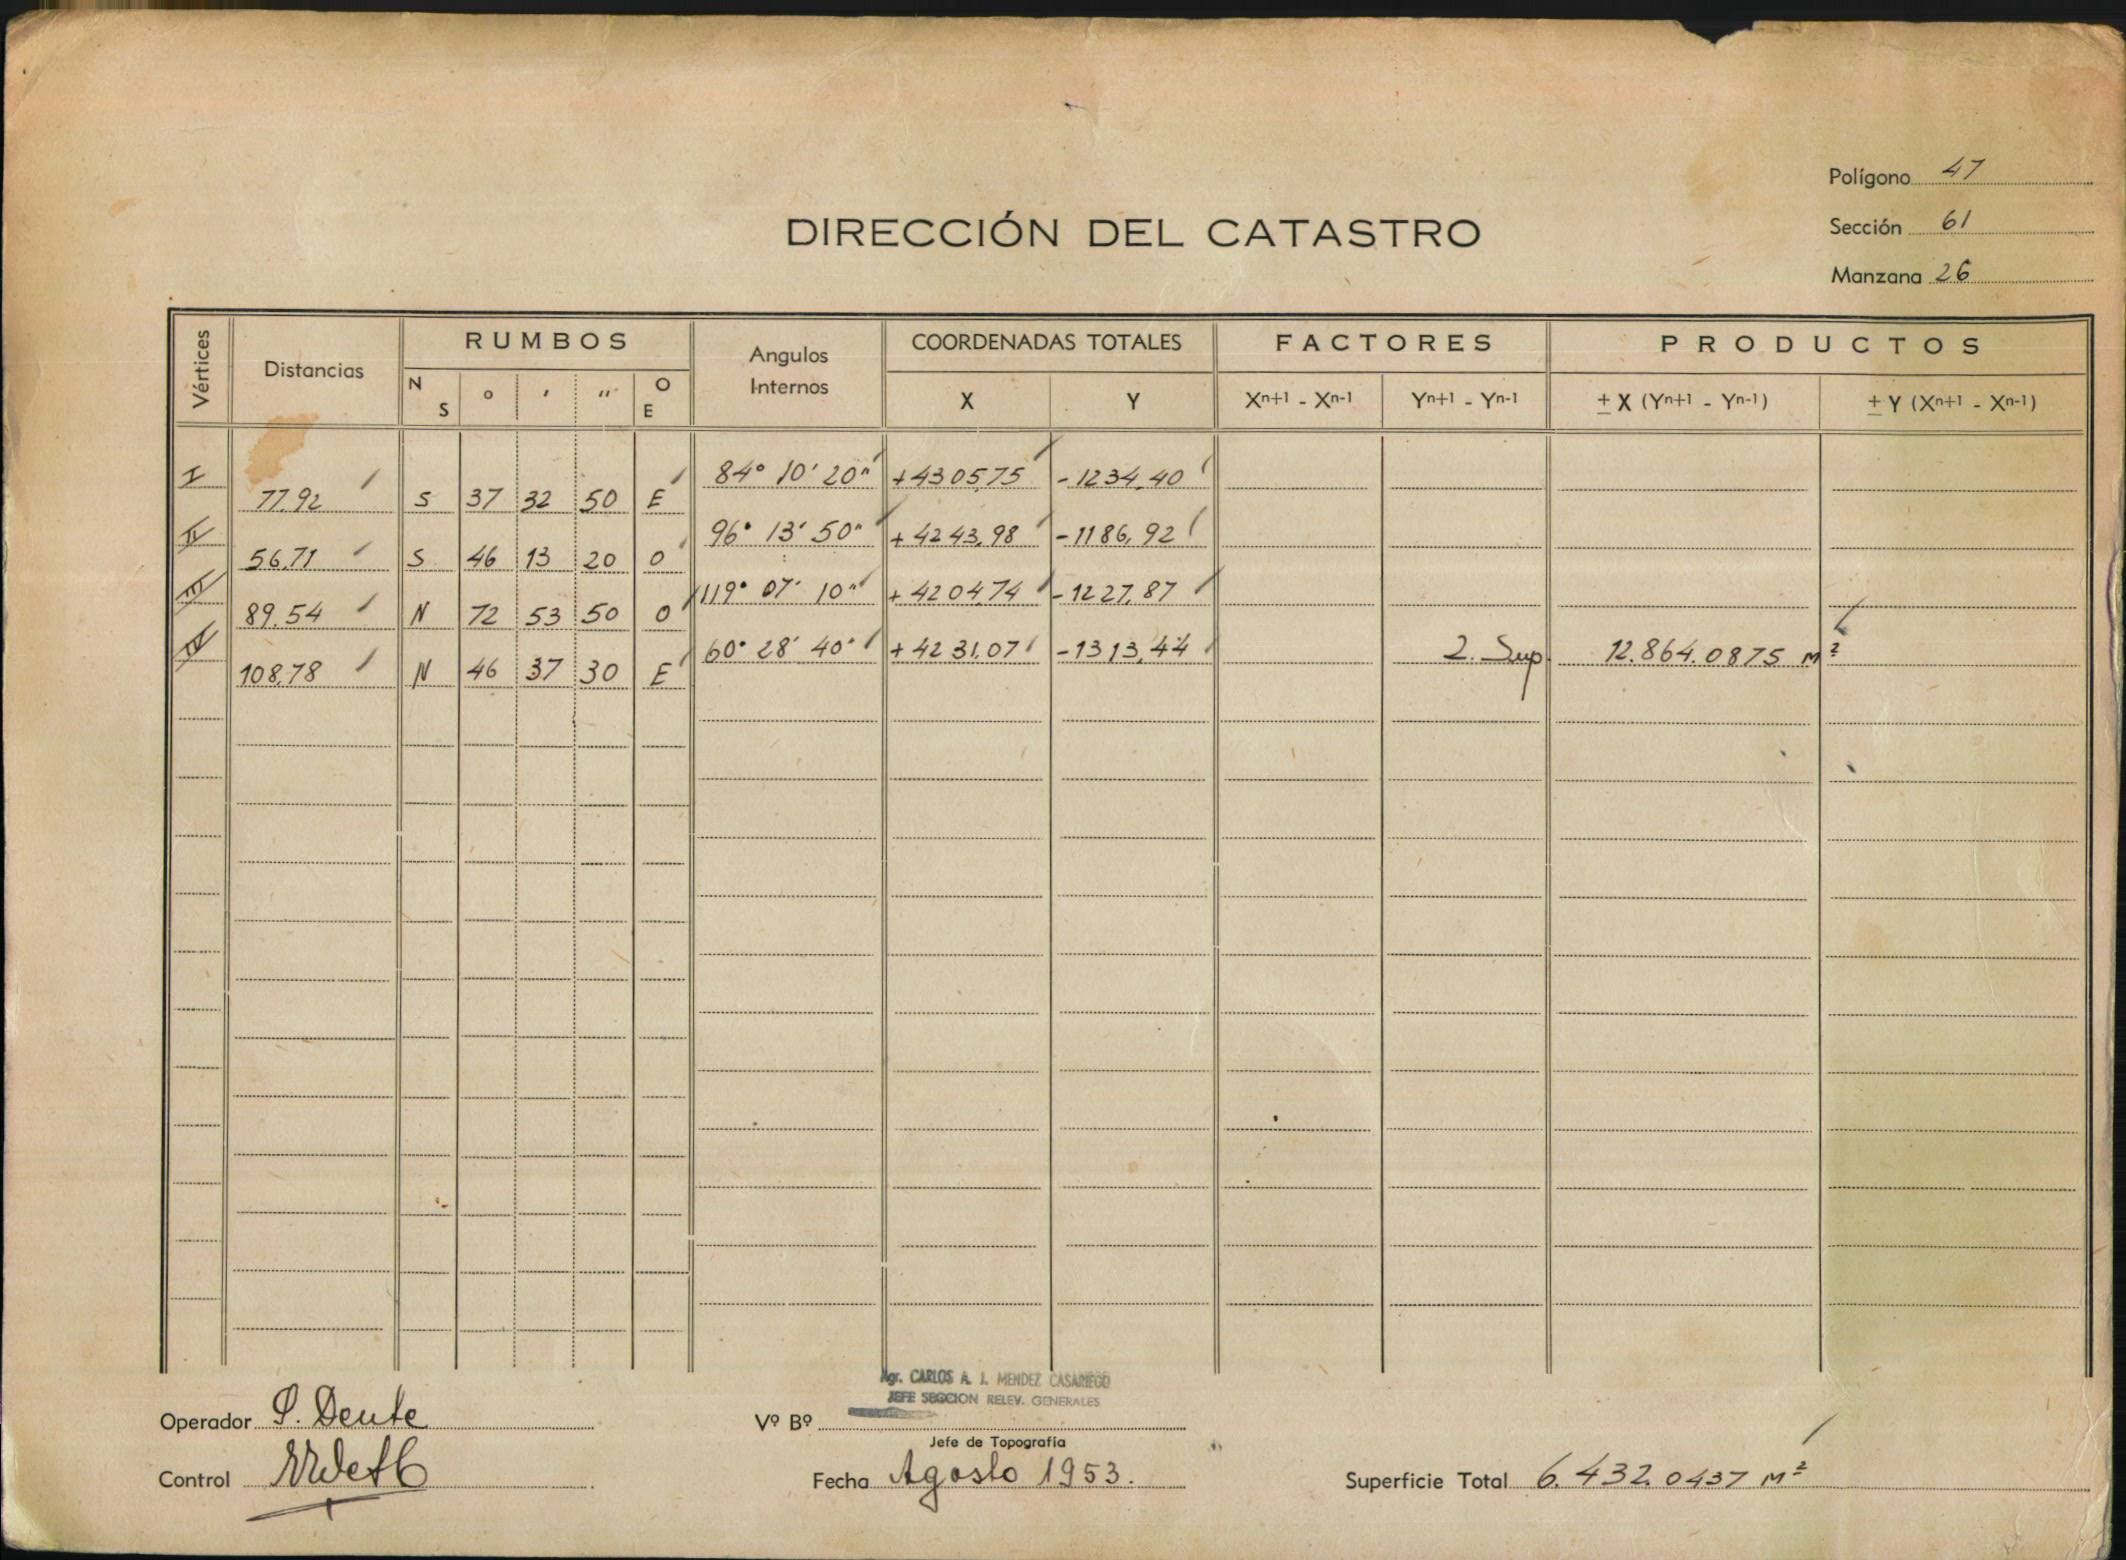 Polígono 47
DIRECCIÓN DEL CATASTRO
Sección 61
Manzana 26
Vértices Distancias RUMBOS Angulos Internos COORDENADAS TOTALES FACTORES PRODUCTOS
N S ° ' " O E X Y Xⁿ⁺¹ - Xⁿ⁻¹ Yⁿ⁺¹ - Yⁿ⁻¹ ± X (Yⁿ⁺¹ - Yⁿ⁻¹) ± Y (Xⁿ⁺¹ - Xⁿ⁻¹)
I 84° 10' 20" +4305,75 -1234,40
77.92 S 37 32 50 E
II 96° 13' 50" +4243,98 -1186,92
56.71 S 46 13 20 O
III 119° 07' 10" +4204,74 -1227,87
89.54 N 72 53 50 O
IV 60° 28' 40" +4231,07 -1313,44 2. Sup. 12.864.0875 M²
108,78 N 46 37 30 E
Agr. CARLOS A. J. MENDEZ CASARIEGO
JEFE SECCION RELEV. GENERALES
Operador P. Dente Vº Bº
Jefe de Topografía
Control Fecha Agosto 1953. Superficie Total 6.432.0437 M²